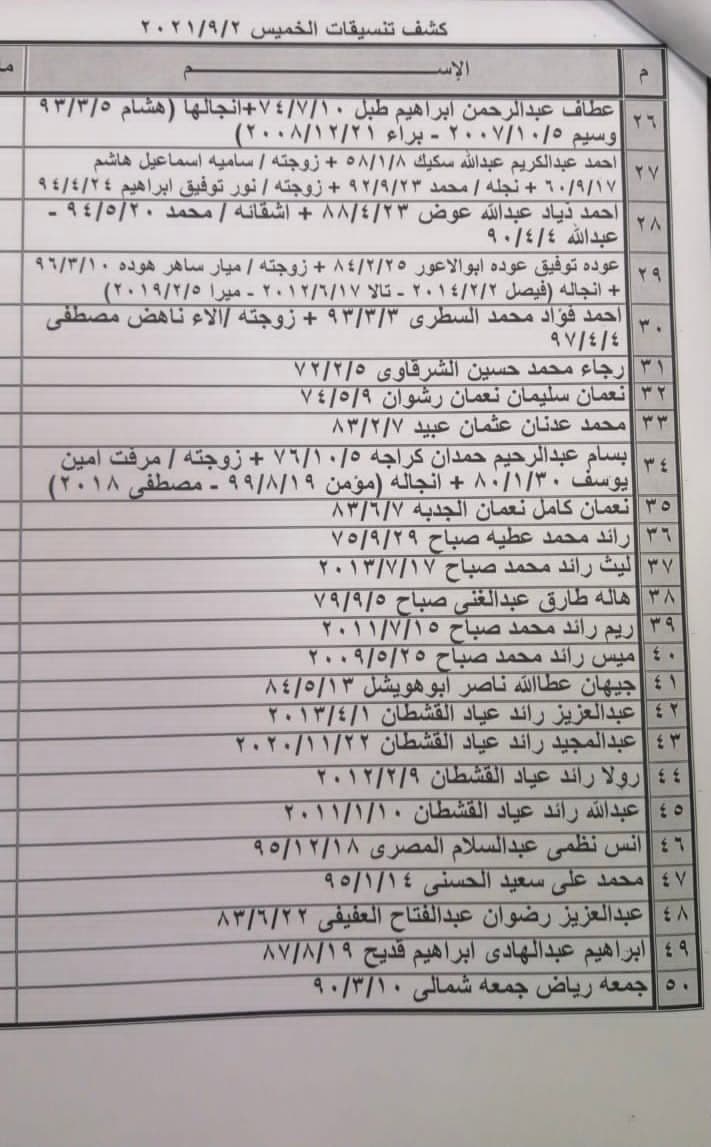 كشف تنسيقات الخميس ٢٠٢١/٩/٢
م الإســـــــــم ما
٢٦ عطاف عبدالرحمن ابراهيم طبل ٧٤/٧/١٠+انجالها (هشام ٩٣/٣/٥
وسيم ٢٠٠٧/١٠/٥ - براء ٢٠٠٨/١٢/٢١)
٢٧ احمد عبدالكريم عبدالله سكيك ٥٨/١/٨ + زوجته / ساميه اسماعيل هاشم
٦٠/٩/١٧ + نجله / محمد ٩٢/٩/٢٣ + زوجته / نور توفيق ابراهيم ٩٤/٤/٢٤
٢٨ احمد ذياد عبدالله عوض ٨٨/٤/٢٣ + اشقائه / محمد ٩٤/٥/٢٠ -
عبدالله ٩٠/٤/٤
٢٩ عوده توفيق عوده ابوالاعور ٨٤/٢/٢٥ + زوجته / ميار ساهر هوده ٩٦/٣/١٠
+ انجاله (فيصل ٢٠١٤/٢/٢ - تالا ٢٠١٢/٦/١٧ - ميرا ٢٠١٩/٢/٥)
٣٠ احمد فؤاد محمد السطرى ٩٣/٣/٣ + زوجته /الاء ناهض مصطفى
٩٧/٤/٤
٣١ رجاء محمد حسين الشرقاوى ٧٢/٢/٥
٣٢ نعمان سليمان نعمان رشوان ٧٤/٥/٩
٣٣ محمد عدنان عثمان عبيد ٨٣/٢/٧
٣٤ بسام عبدالرحيم حمدان كراجه ٧٦/١٠/٥ + زوجته / مرفت امين
يوسف ٨٠/١/٣٠ + انجاله (مؤمن ٩٩/٨/١٩ - مصطفى ٢٠١٨)
٣٥ نعمان كامل نعمان الجدبه ٨٣/٦/٧
٣٦ رائد محمد عطيه صباح ٧٥/٩/٢٩
٣٧ ليث رائد محمد صباح ٢٠١٣/٧/١٧
٣٨ هاله طارق عبدالغنى صباح ٧٩/٩/٥
٣٩ ريم رائد محمد صباح ٢٠١١/٧/١٥
٤٠ ميس رائد محمد صباح ٢٠٠٩/٥/٢٥
٤١ جيهان عطاالله ناصر ابوهويشل ٨٤/٥/١٣
٤٢ عبدالعزيز رائد عياد القشطان ٢٠١٣/٤/١
٤٣ عبدالمجيد رائد عياد القشطان ٢٠٢٠/١١/٢٢
٤٤ رولا رائد عياد القشطان ٢٠١٢/٢/٩
٤٥ عبدالله رائد عياد القشطان ٢٠١١/١/١٠
٤٦ انس نظمى عبدالسلام المصرى ٩٥/١٢/١٨
٤٧ محمد على سعيد الحسنى ٩٥/١/١٤
٤٨ عبدالعزيز رضوان عبدالفتاح العفيفى ٨٣/٦/٢٢
٤٩ ابراهيم عبدالهادى ابراهيم قديح ٨٧/٨/١٩
٥٠ جمعه رياض جمعه شمالى ٩٠/٣/١٠